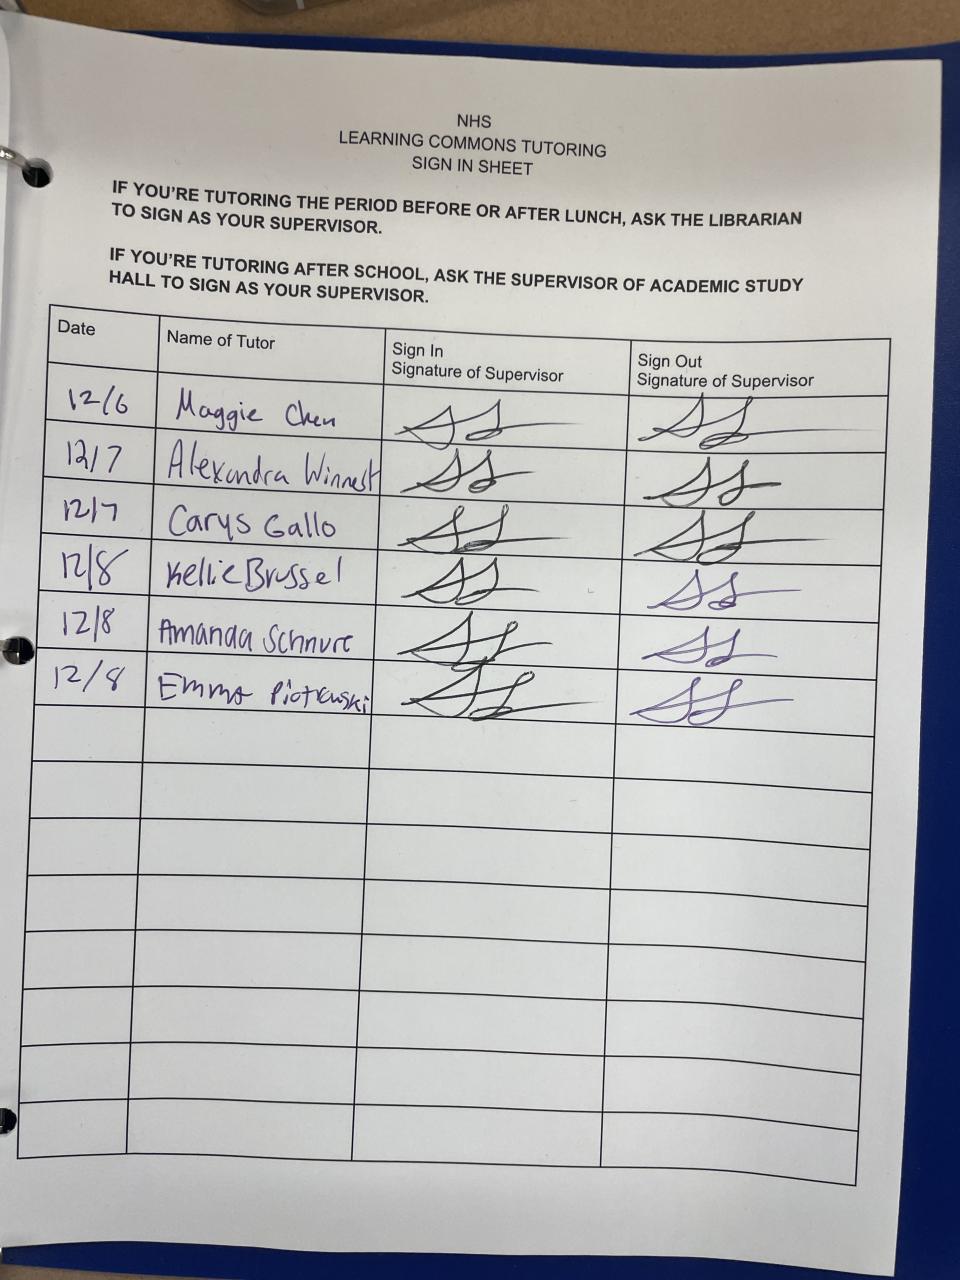 NHS
LEARNING COMMONS TUTORING
SIGN IN SHEET
IF YOU'RE TUTORING THE PERIOD BEFORE OR AFTER LUNCH, ASK THE LIBRARIAN
TO SIGN AS YOUR SUPERVISOR.
IF YOU'RE TUTORING AFTER SCHOOL, ASK THE SUPERVISOR OF ACADEMIC STUDY
HALL TO SIGN AS YOUR SUPERVISOR.
Date Name of Tutor Sign In Sign Out
Signature of Supervisor Signature of Supervisor
12/6 Maggie Chen
12/7 Alexandra Winnest
12/7 Carys Gallo
12/8 Kellie Brussel
12/8 Amanda Schnurr
12/8 Emma Piotrowski